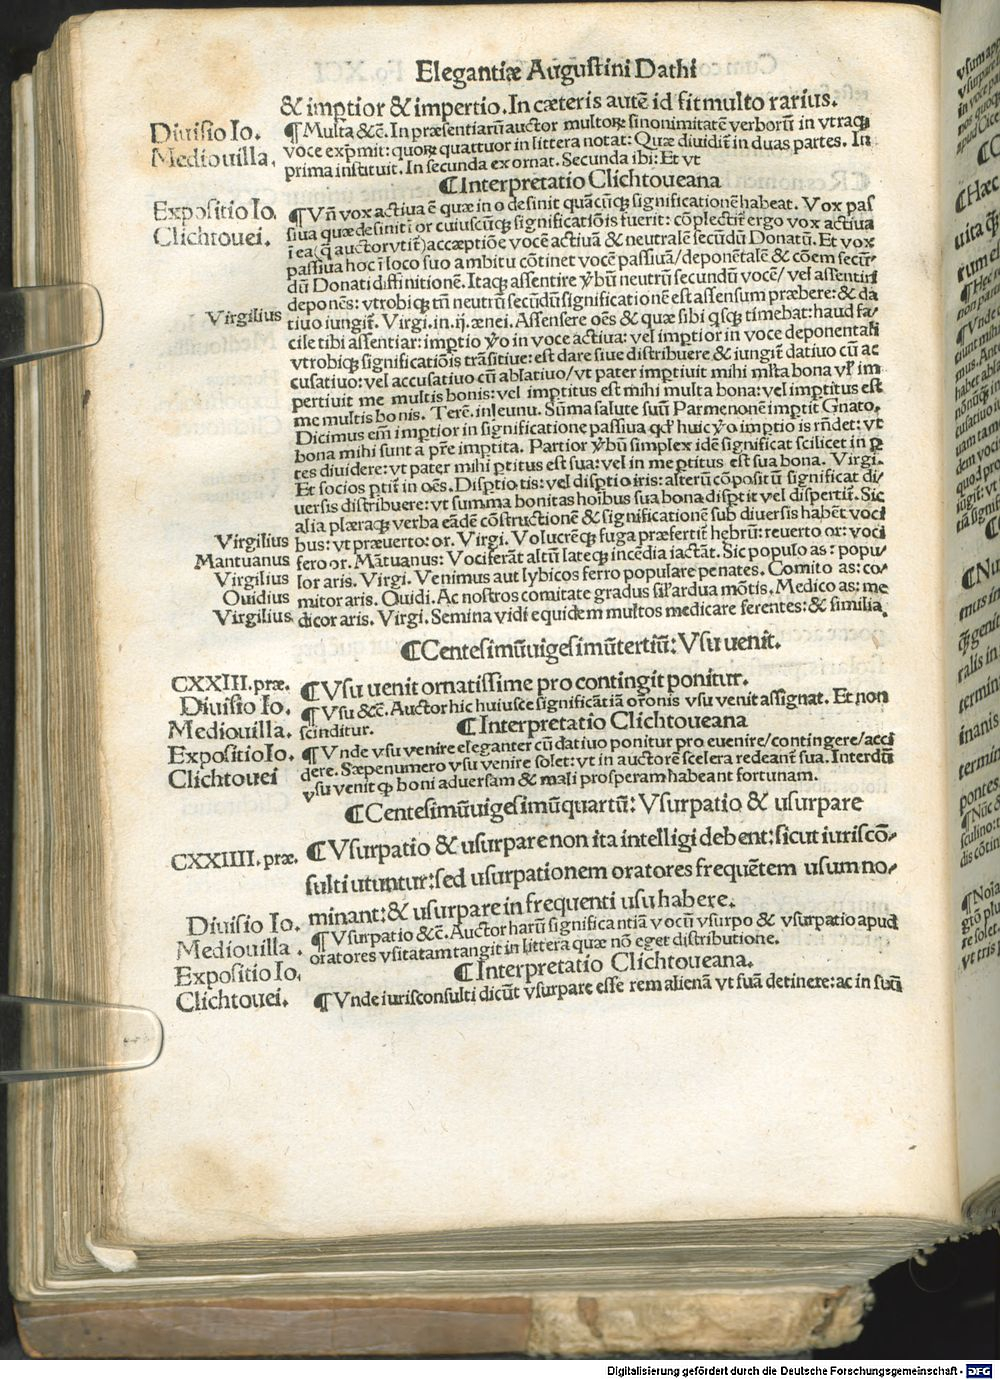 Elegantiæ Augustini Dathi
& imptior & impertio. In cæteris autē id fit multo rarius.
Diuisio Io. Mediouilla.
¶ Multa &c̄. In præsentiarū auctor multoꝝ sinonimitatē verborū in vtraꝗ
voce exp̄mit: quoꝝ quattuor in littera notat: Quæ diuidit̄ in duas partes. In
prima instituit. In secunda exornat. Secunda ibi: Et vt
¶ Interpretatio Clichtoueana
Expositio Io. Clichtouei.
¶ Vn̄ vox actiua ē quæ in o desinit quācūꝗ significationē habeat. Vox pas
siua quæ desinit in or cuiuscūꝗ significatiōis fuerit: cōplectit̄ ergo vox actiua
ī ea (q̄ auctor vtit̄) accæptiōe vocē actiuā & neutralē secūdū Donatū. Et vox
passiua hoc ī loco suo ambitu cōtinet vocē passiuā/deponētalē & cōem secū-
dū Donati diffinitionē. Itaꝗ assentire v̄bū neutrū secundū vocē/ vel assentiri
deponēs: vtrobiꝗ tn̄ neutrū secūdū significationē est assensum præbere: & da
Virgilius
tiuo iungit̄. Virgi. in. ij. ænei. Assensere oēs & quæ sibi qsꝗ timebat: haud fa/
cile tibi assentiar: imptio v̄o in voce actiua: vel imptior in voce deponentali
vtrobiꝗ significatiōis trāsitiue: est dare siue distribuere & iungit̄ datiuo cū ac
cusatiuo: vel accusatiuo cū ablatiuo/ vt pater imptiuit mihi ml̄ta bona vl̄ im
pertiuit me multis bonis: vel imptitus est mihi multa bona: vel imptitus est
me multis bonis. Terē. in eunu. Sūma salute suū Parmenonē imptit Gnato.
Dicimus em̄ imptior in significatione passiua qd' huic v̄o imptio is rn̄det: vt
bona mihi sunt a pr̄e imptita. Partior v̄bū simplex idē significat scilicet in p̱
tes diuidere: vt pater mihi ptitus est sua: vel in me ptitus est sua bona. Virgi.
Et socios ptit̄ in oēs. Disptio tis: vel disptioiris: alterū cōpositū significat di/
uersis distribuere: vt summa bonitas hoībus sua bona disptit vel dispertit̄. Sic
alia plæraꝗ verba eādē cōstructionē & significationē sub diuersis habēt voci
Virgilius
bus: vt præuerto: or. Virgi. Volucrēꝗ fuga præfertit̄ hebrū: reuerto or: voci
Mantuanus
fero or. Mātuanus: Vociferāt altū lateꝗ incēdia iactāt. Sic populo as: popu/
Virgilius
lor aris. Virgi. Venimus aut lybicos ferro populare penates. Comito as: co/
Ouidius
mitor aris. Ouidi. Ac nostros comitate gradus sil̄ ardua mōtis. Medico as: me
Virgilius
dicor aris. Virgi. Semina vidi equidem multos medicare serentes: & similia.
¶ Centesimūuigesimūtertiū: Vsu uenit.
CXXIII. præ.
¶ Vsu uenit ornatissime pro contingit ponitur.
Diuisio Io. Mediouilla.
¶ Vsu &c̄. Auctor hic huiusce significātiā orōnis vsu venit assignat. Et non
scinditur.
¶ Interpretatio Clichtoueana
Expositio Io. Clichtouei
¶ Vnde vsu venire eleganter cū datiuo ponitur pro euenire/contingere/acci
dere. Sæpenumero vsu venire solet: vt in auctorē scelera redeant sua. Interdū
vsu venit ꝙ boni aduersam & mali prosperam habeant fortunam.
¶ Centesimūuigesimūquartū: Vsurpatio & usurpare
CXXIIII. præ.
¶ Vsurpatio & usurpare non ita intelligi debent: sicut iuriscō/
sulti utuntur: sed usurpationem oratores frequētem usum no/
minant: & usurpare in frequenti usu habere.
Diuisio Io. Mediouilla.
¶ Vsurpatio &c̄. Auctor harū significantiā vocū vsurpo & vsurpatio apud
oratores vsitatam tangit in littera quæ nō eget distributione.
¶ Interpretatio Clichtoueana.
Expositio Io. Clichtouei.
¶ Vnde iurisconsulti dicūt vsurpare esse rem alienā vt suā detinere: ac in suū
Digitalisierung gefördert durch die Deutsche Forschungsgemeinschaft - DFG